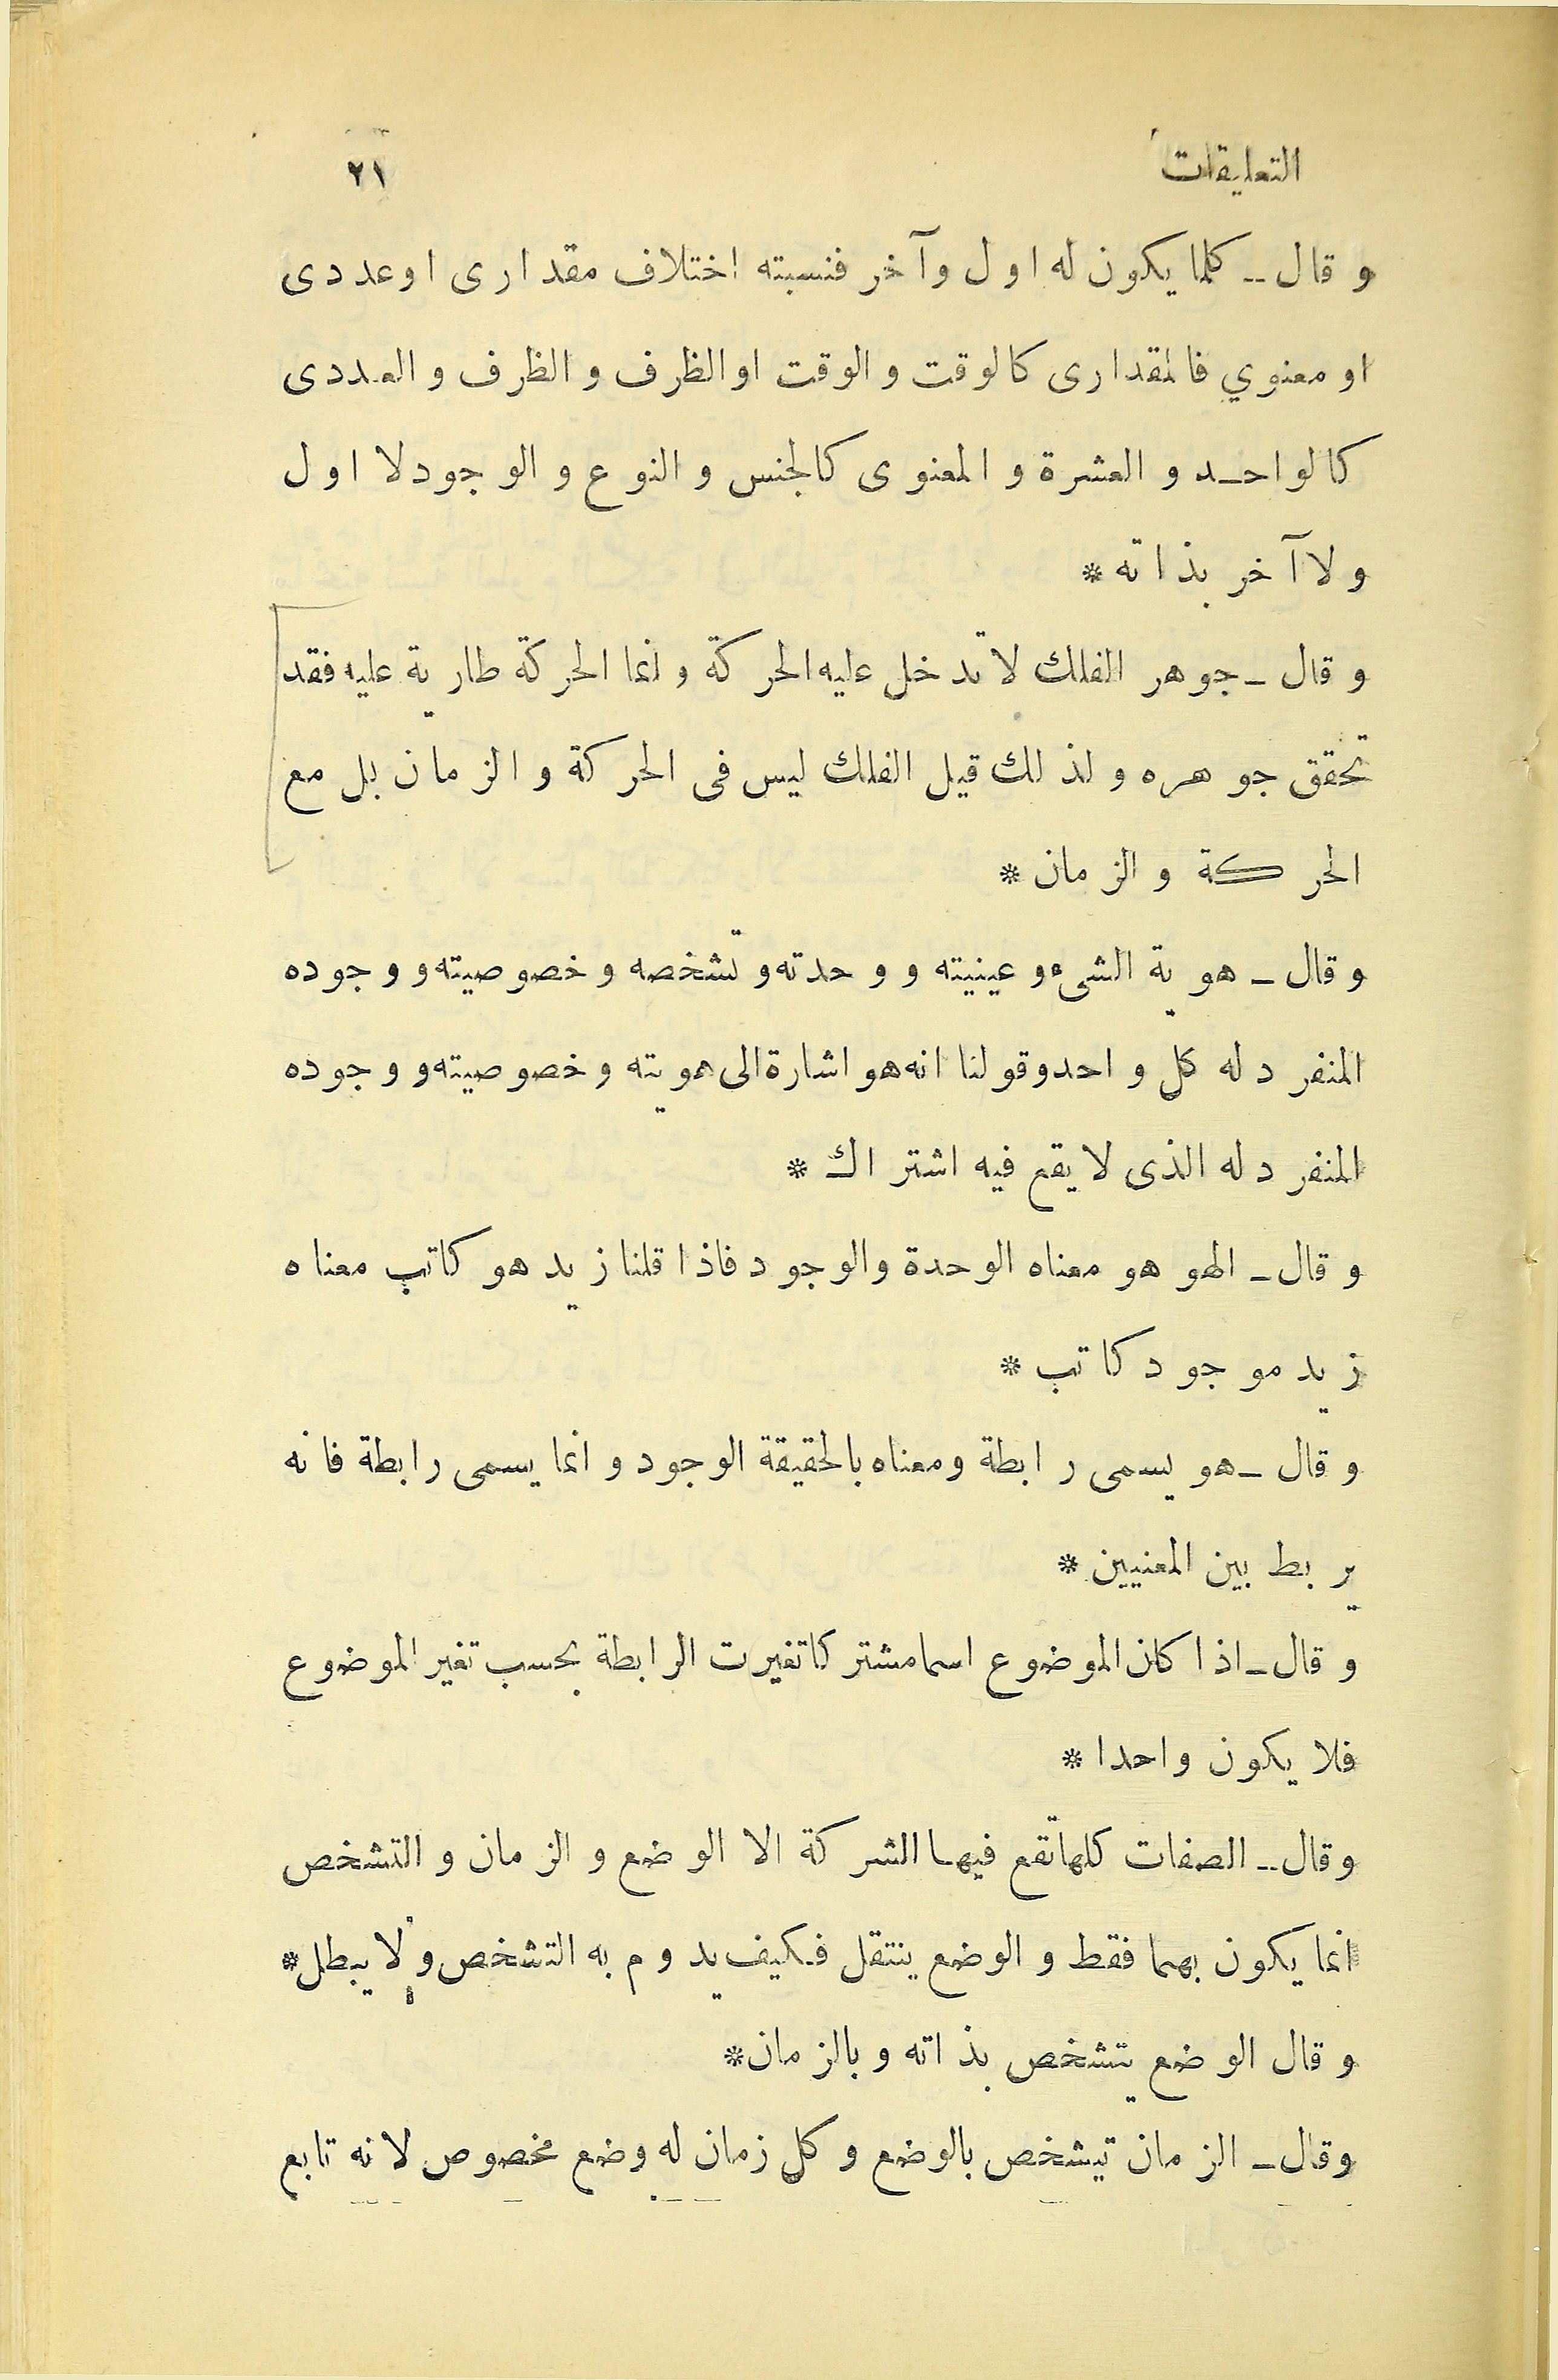 التعليقات ٢١
وقال ــ كلما يكون له اول وآخر فنسبته اختلاف مقدارى اوعددى
او معنوي فالمقدارى كالوقت والوقت اوالظرف والظرف والعددى
كالواحد والعشرة والمعنوى كالجنس والنوع والوجود لا اول
ولا آخر بذاته *
وقال ــ جوهر الفلك لا تدخل عليه الحركة وانما الحركة طارية عليه فقد
تحقق جوهره ولذلك قيل الفلك ليس فى الحركة والزمان بل مع
الحركة والزمان *
وقال ــ هوية الشىء وعينيته ووحدته وتشخصه وخصوصيته ووجوده
المنفرد له كل واحد وقولنا انه هو اشارة الى هويته وخصوصيته ووجوده
المنفرد له الذى لا يقع فيه اشتراك *
وقال ــ الهو هو معناه الوحدة والوجود فاذا قلنا زيد هو كاتب معناه
زيد موجود كاتب *
وقال ــ هو يسمى رابطة ومعناه بالحقيقة الوجود وانما يسمى رابطة فانه
يربط بين المعنيين *
وقال ــ اذا كان الموضوع اسما مشتركا تغيرت الرابطة بحسب تغير الموضوع
فلا يكون واحدا *
وقال ــ الصفات كلها تقع فيها الشركة الا الوضع والزمان والتشخص
انما يكون بهما فقط والوضع ينتقل فكيف يدوم به التشخص ولا يبطل *
وقال الوضع يتشخص بذاته وبالزمان *
وقال ــ الزمان تيشخص بالوضع وكل زمان له وضع مخصوص لانه تابع